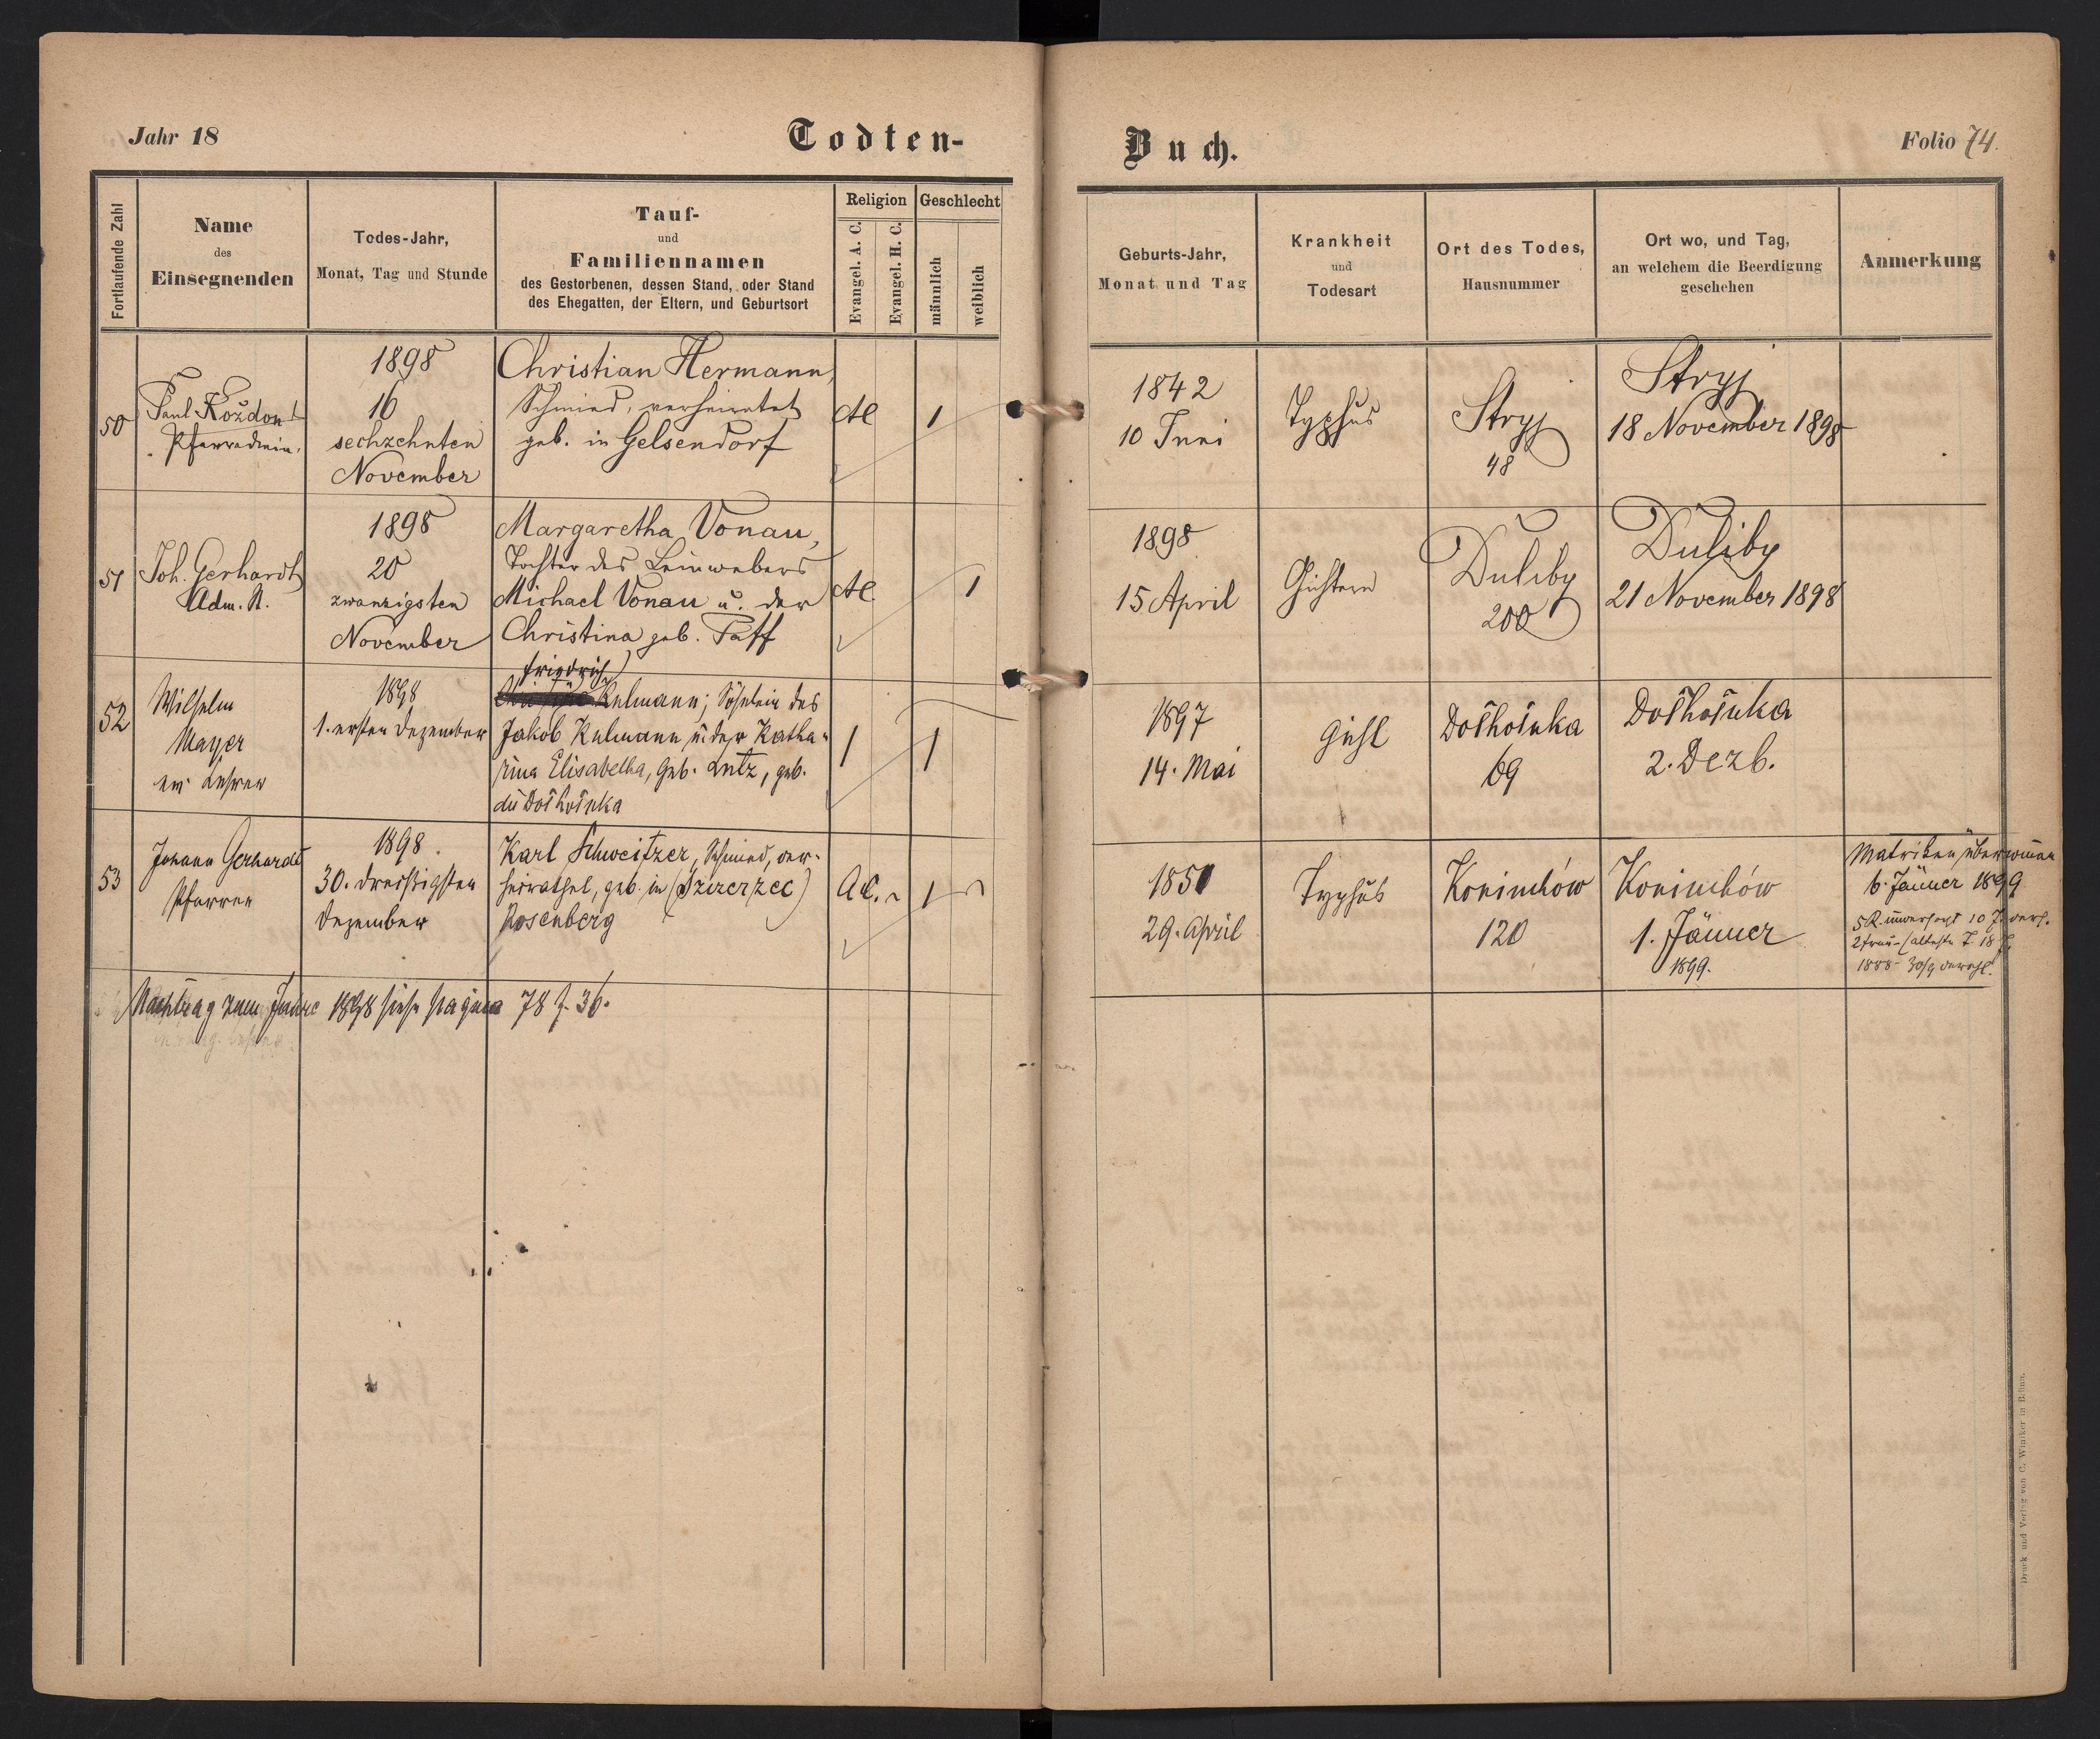 Jahr 18
Todten-
Buch.
Folio 74.
Fortlaufende Zahl
Name
des
Einsegnenden
Todes-Jahr,
Monat, Tag und Stunde
Tauf-
und
Familiennamen
des Gestorbenen, dessen Stand, oder Stand
des Ehegatten, der Eltern, und Geburtsort
Religion
Evangel. A. C.
Evangel. H. C.
Geschlecht
männlich
weiblich
Geburts-Jahr,
Monat und Tag
Krankheit
und
Todesart
Ort des Todes,
Hausnummer
Ort wo, und Tag,
an welchem die Beerdigung
geschehen
Anmerkung
50
Paul Kozdon
1898
16
sechzehnten
November
Christian Hermann,
Schmied, verheiratet
geb. in Gelsendorf
AC
1
1842
10 Juni
Typhus
Stryj
48
Stryj
18 November 1898
51
Joh. Gerhardt
Adm. R.
1898
20
zwanzigsten
November
Margaretha Vonau,
Tochter des Leinwebers
Michael Vonau u. der
Christina geb. Paff
AC.
1
1898
15 April
Gichtern
Duliby
200
Duliby
21 November 1898
52
Wilhelm
Mayer
ev. Lehrer
1898
1. ersten Dezember
Friedrich
Kulmann; Söhnlein des
Jakob Kulmann u. der Katha-
rina Elisabetha, geb. Lutz, geb.
1
1
1897
14. Mai
69
2. Dezb.
53
Johann Gerhardt
Pfarrer
1898.
30. dreißigsten
Dezember
Karl Schweitzer, Schmied, ver-
heirathet, geb. in (Szczerzec)
Rosenberg
AC.
1
1850
29. April
Typhus
Koniuchów
120
Koniuchów
1. Jänner
1899.
Matriken
6. Jänner 1899
Nachtrag zum Jahre 1898 siehe pagina 78 f. 36.
Druck und Verlag von C. Winiker in Brünn.